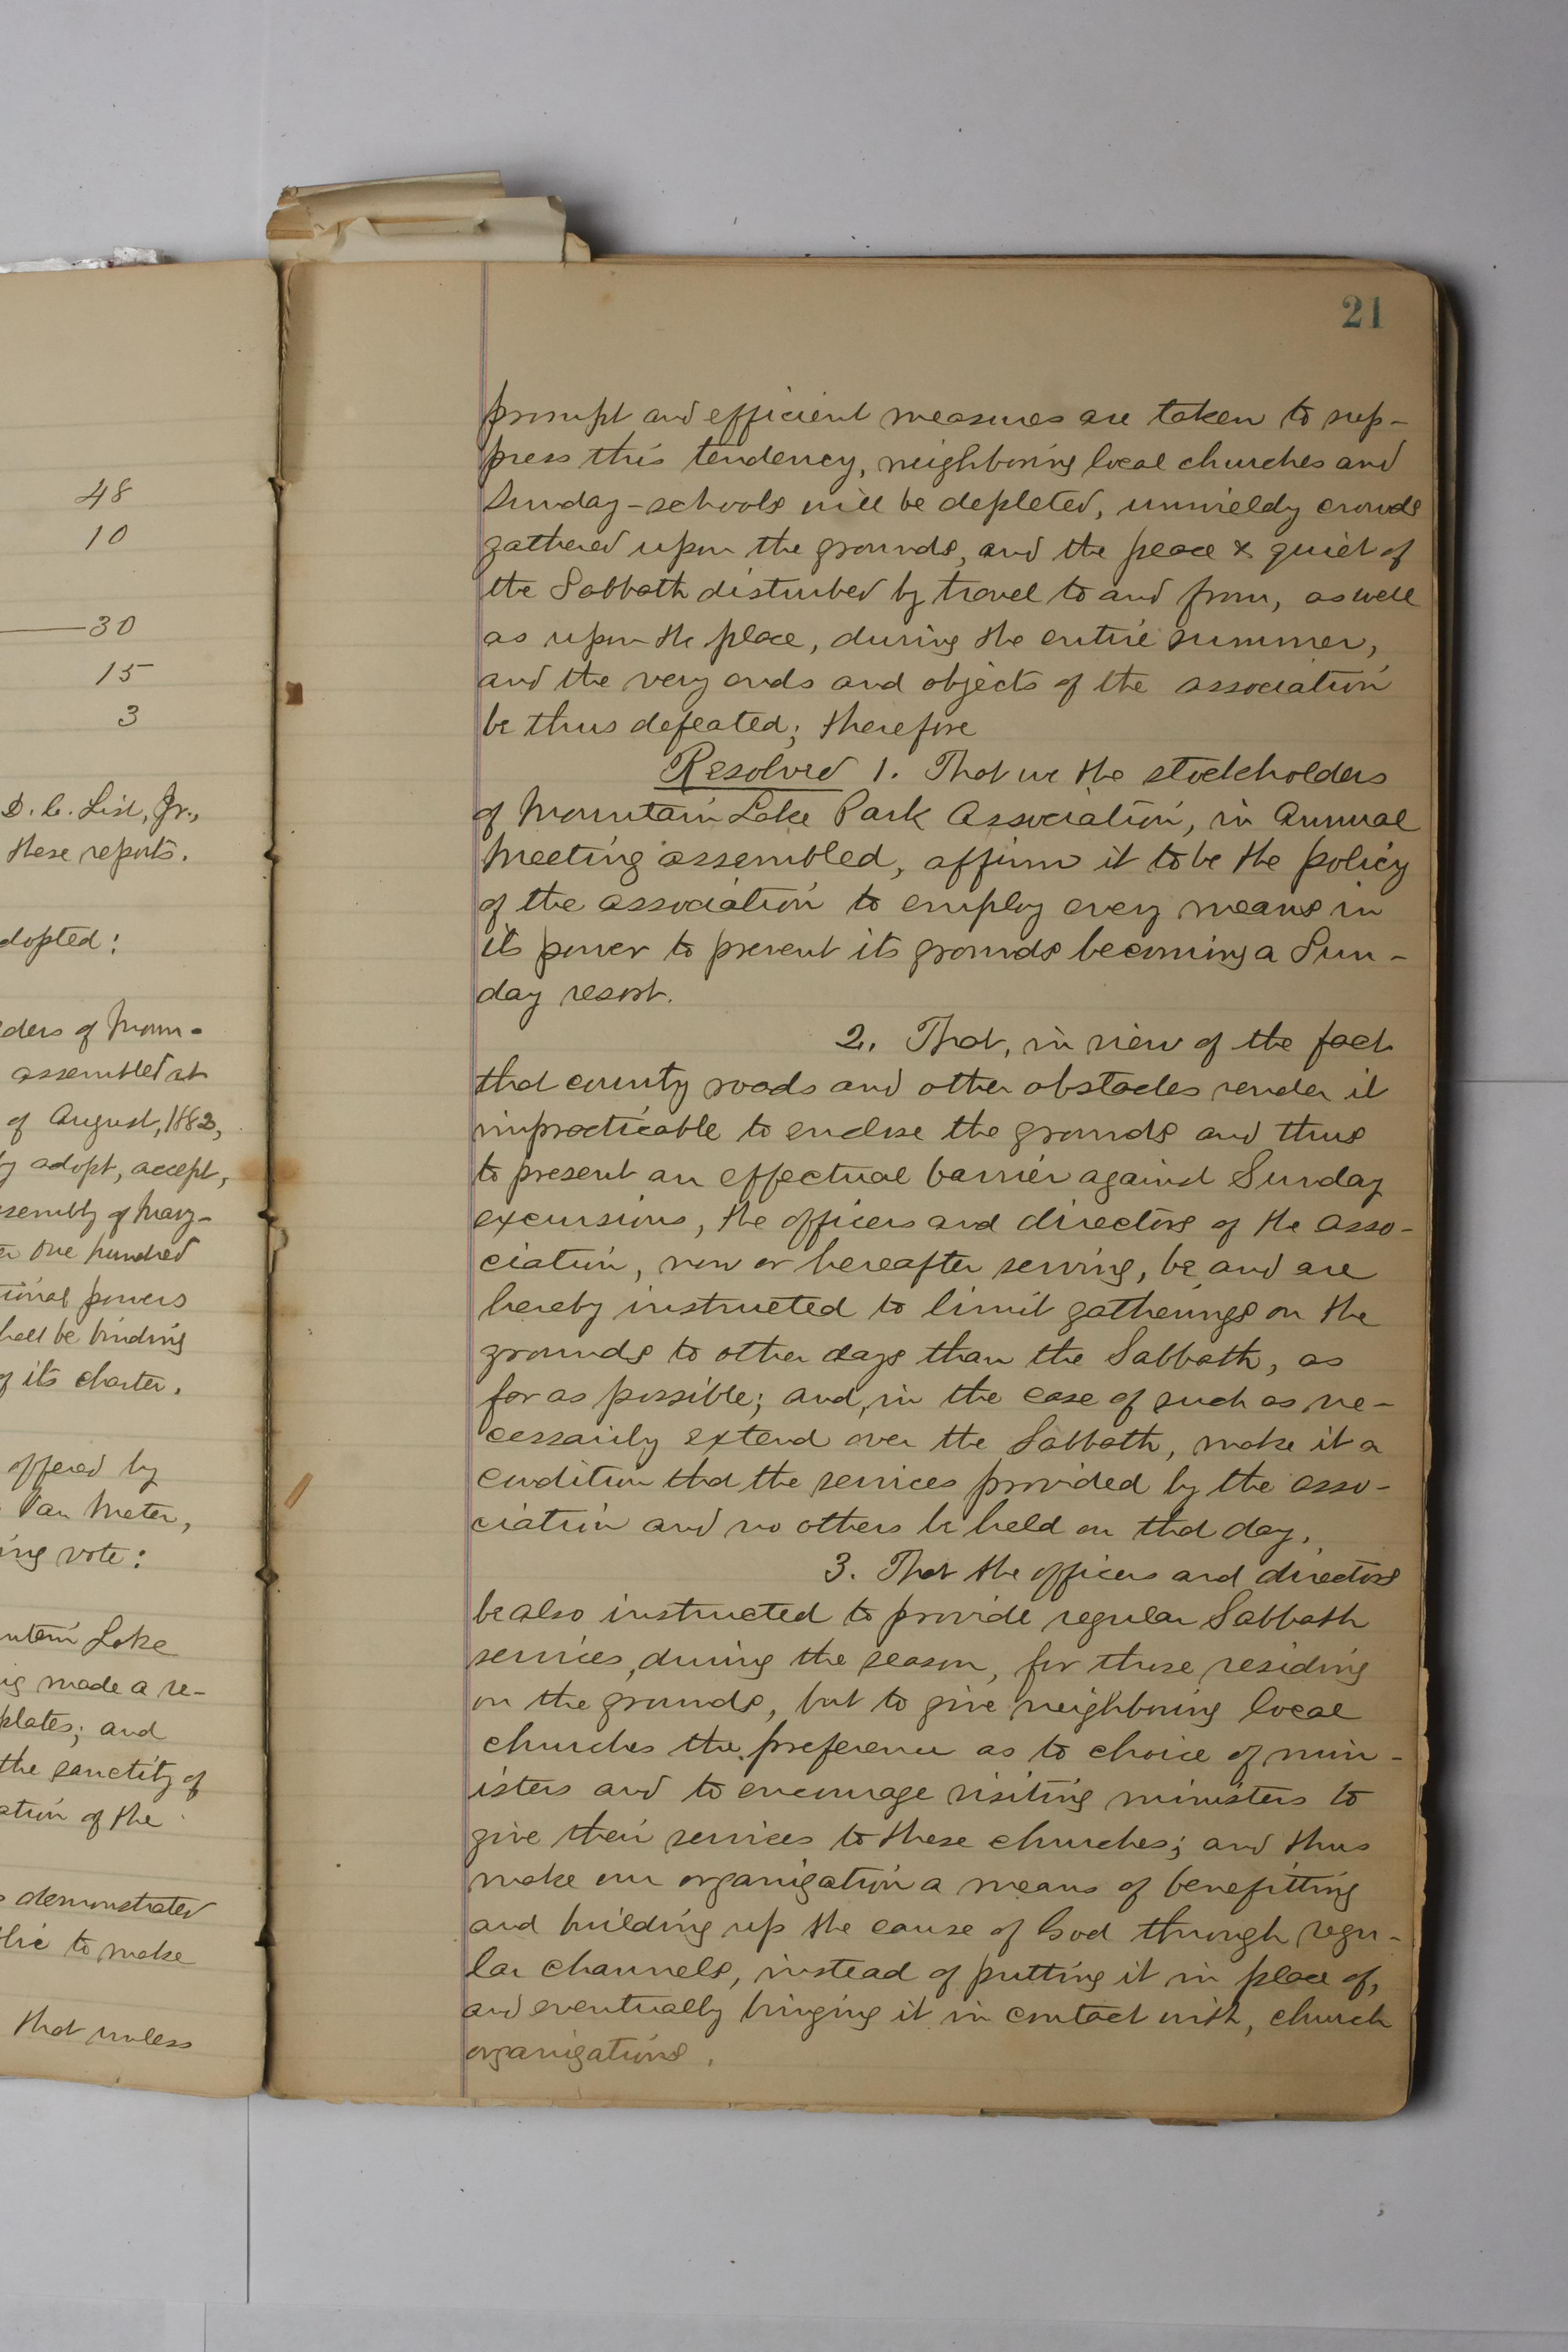 48
10
30
15
3
D. C. List, Jr.,
these reports.
dopted:
ders of Moun-
assembled at
of August, 1882,
y adopt, accept,
sembly of Mary-
one hundred
tional powers
hall be binding
of its charter.
offered by
Van Meter,
ing vote:
untain Lake
ng made a re-
plates; and
the sanctity of
ation of the
demonstrated
blic to make
that unless
21
prompt and efficient measures are taken to sup-
press this tendency, neighboring local churches and
Sunday-schools will be depleted, unwieldy crowds
gathered upon the grounds, and the peace & quiet of
the Sabbath disturbed by travel to and from, as well
as upon the place, during the entire summer,
and the very ends and objects of the association
be thus defeated; therefore
Resolved 1. That we the stockholders
of Mountain Lake Park Association, in Annual
Meeting assembled, affirm it to be the policy
of the association to employ every means in
its power to prevent its grounds becoming a Sun-
day resort.
2. That, in view of the fact
that county roads and other obstacles render it
impracticable to enclose the grounds and thus
to present an effectual barrier against Sunday
excursions, the officers and directors of the asso-
ciation, now or hereafter serving, be and are
hereby instructed to limit gatherings on the
grounds to other days than the Sabbath, as
far as possible; and, in the case of such as ne-
cessarily extend over the Sabbath, make it a
condition that the services provided by the asso-
ciation and no others be held on that day.
3. That the officers and directors
be also instructed to provide regular Sabbath
services, during the season, for those residing
on the grounds, but to give neighboring local
churches the preference as to choice of min-
isters and to encourage visiting ministers to
give their services to these churches; and thus
make our organization a means of benefitting
and building up the cause of God through regu-
lar channels, instead of putting it in place of,
and eventually bringing it in contact with, church
organizations.